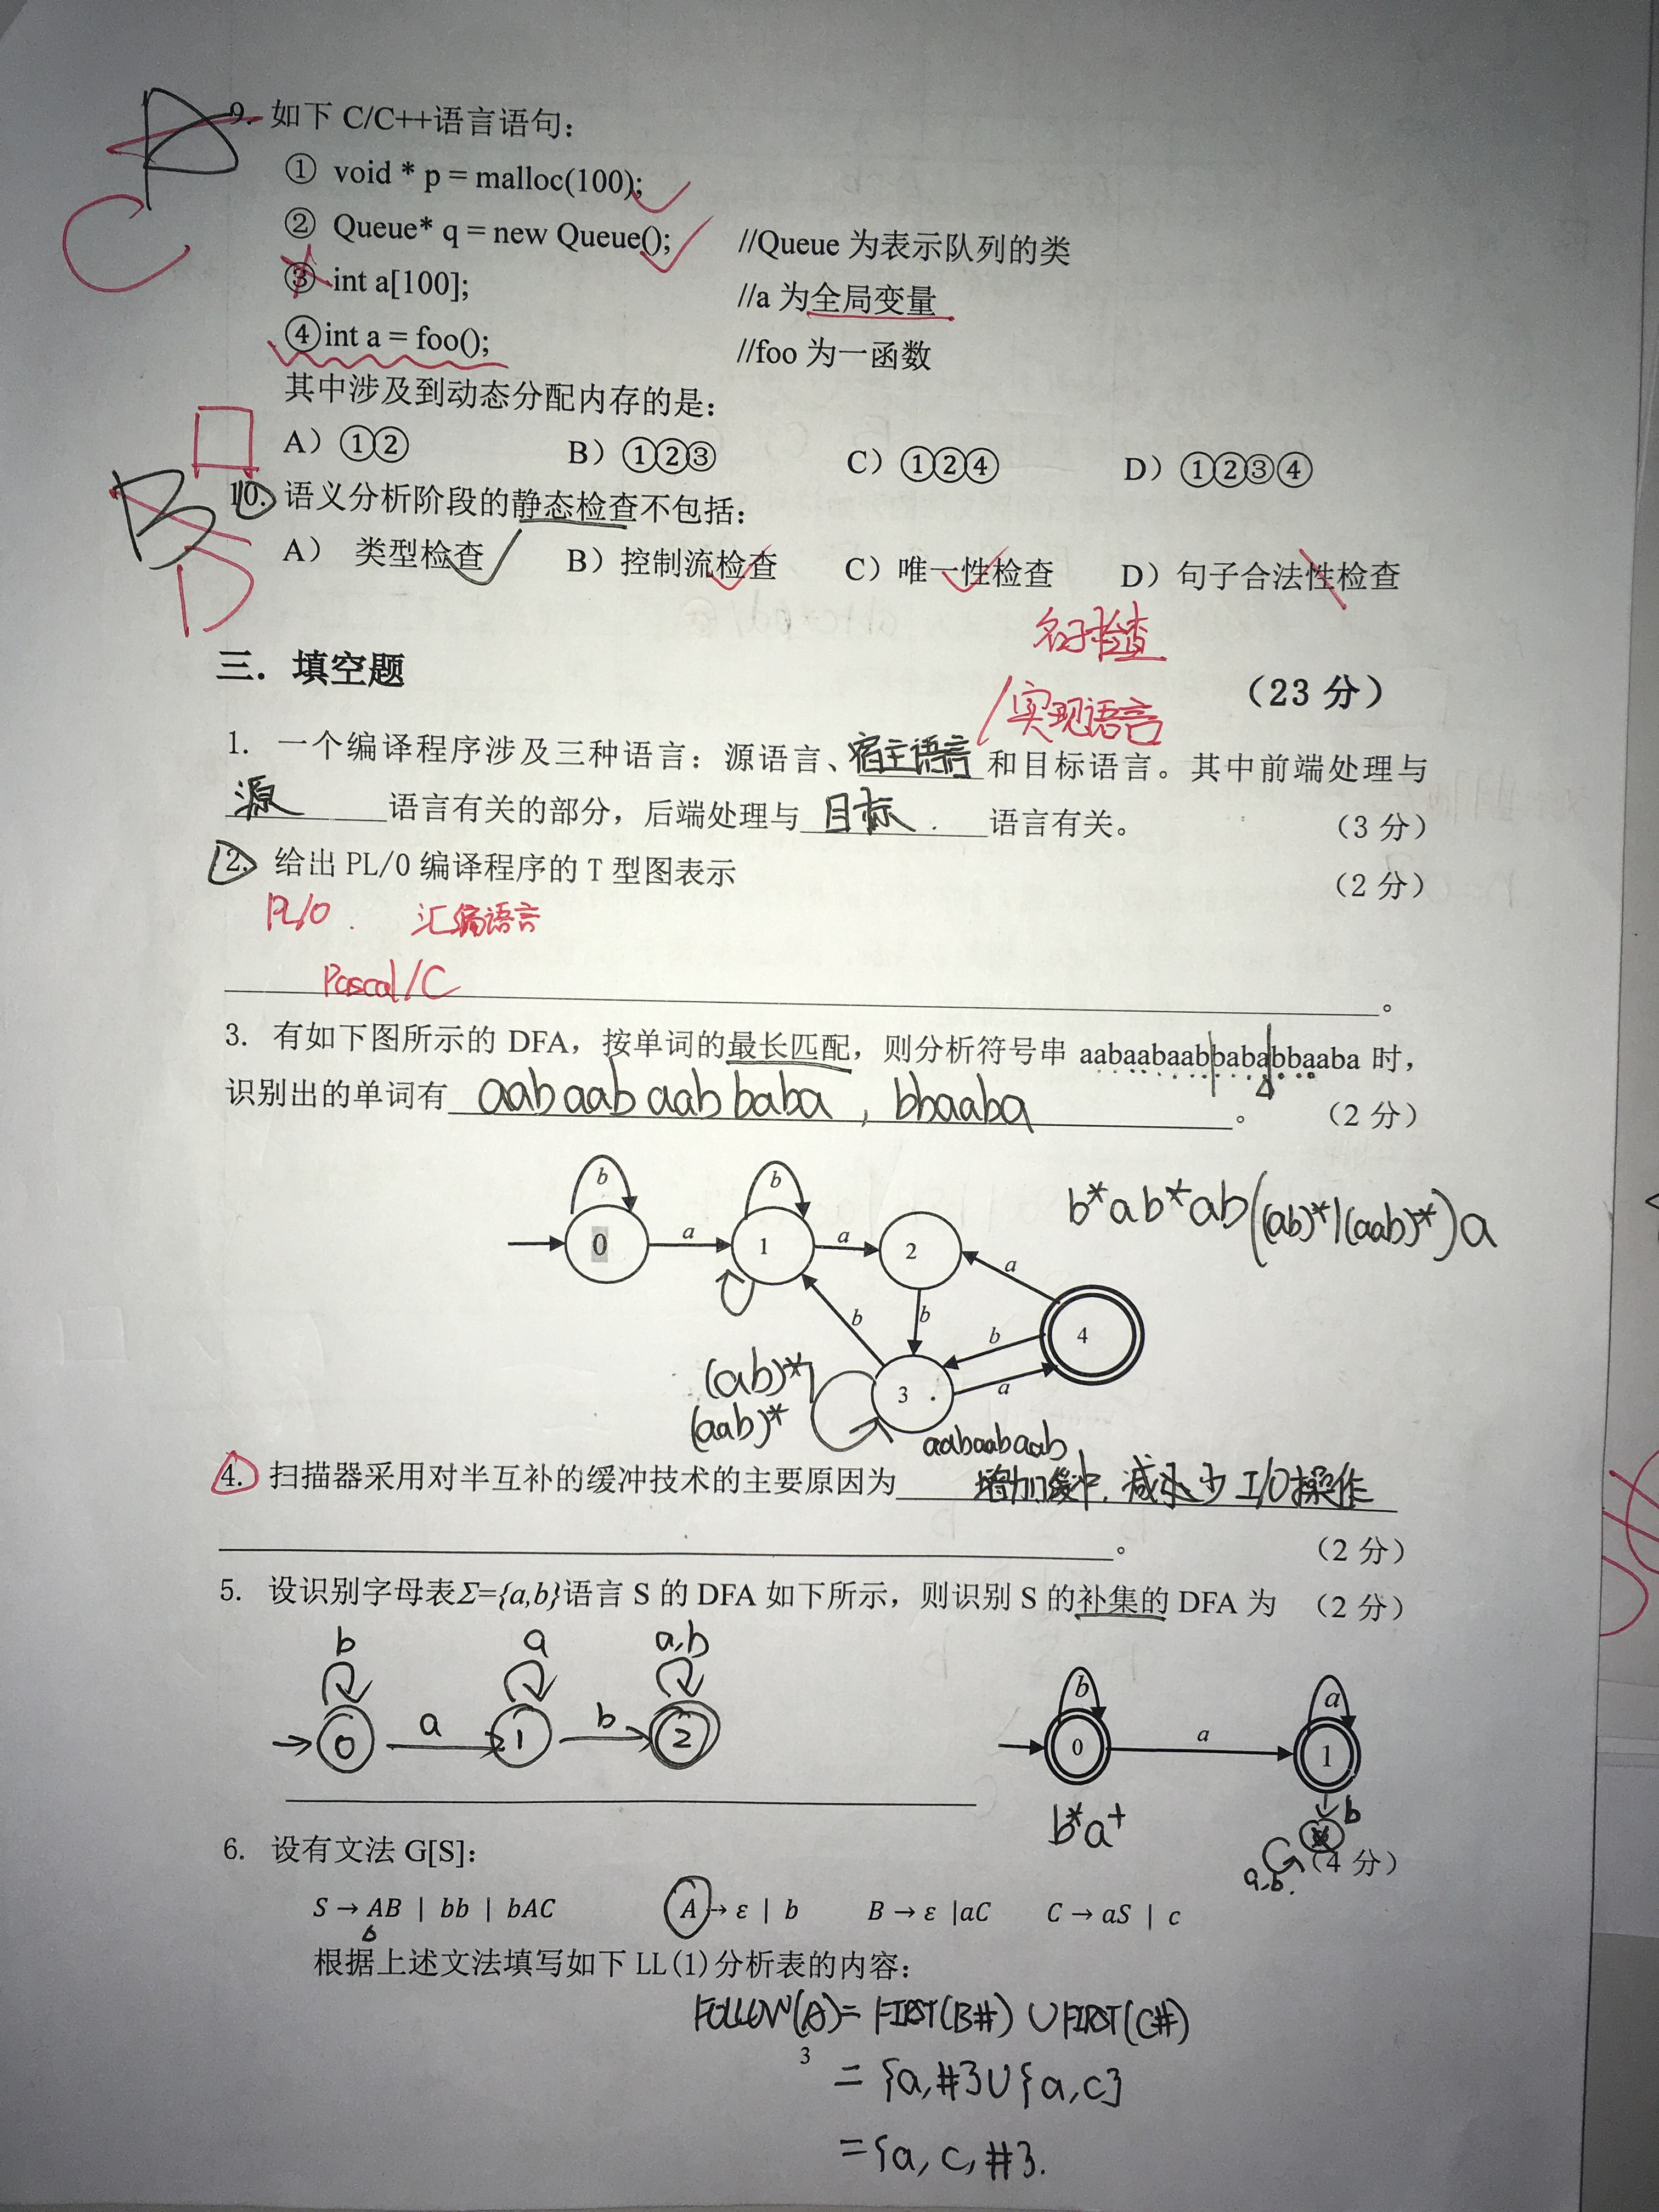 9. 如下 C/C++语言语句：
D
C
① void * p = malloc(100);
② Queue* q = new Queue(); //Queue 为表示队列的类
③ int a[100]; //a 为全局变量
④int a = foo(); //foo 为一函数
其中涉及到动态分配内存的是：
A）①② B）①②③ C）①②④ D）①②③④
10. 语义分析阶段的静态检查不包括：
B
D
A） 类型检查 B）控制流检查 C）唯一性检查 D）句子合法性检查
名字检查
三．填空题 （23 分）
/实现语言
1. 一个编译程序涉及三种语言：源语言、宿主语言和目标语言。其中前端处理与
源 语言有关的部分，后端处理与 目标 语言有关。 （3 分）
2. 给出 PL/0 编译程序的 T 型图表示 （2 分）
PL/0 汇编语言
Pascal/C 。
3. 有如下图所示的 DFA，按单词的最长匹配，则分析符号串 aabaabaabbababbaaba 时，
识别出的单词有 aabaabaabbaba , bbaaba 。 （2 分）
b b
0 a 1 a 2 a
b b b 4
3 a
b*ab*ab((ab)*|(aab)*)a
(ab)*
(aab)*
aabaabaab
4. 扫描器采用对半互补的缓冲技术的主要原因为 增加缓冲，减少 I/O操作
。 （2 分）
5. 设识别字母表Σ={a,b}语言 S 的 DFA 如下所示，则识别 S 的补集的 DFA 为 （2 分）
b a a,b
0 a 1 b 2
b a
0 a 1
b*a+ b
a,b.
6. 设有文法 G[S]： （4 分）
S → AB | bb | bAC A → ε | b B → ε |aC C → aS | c
b
根据上述文法填写如下 LL(1)分析表的内容：
FOLLOW(A)= FIRST(B#) ∪ FIRST(C#)
3
= {a,#}∪{a,c}
={a, c, #}.